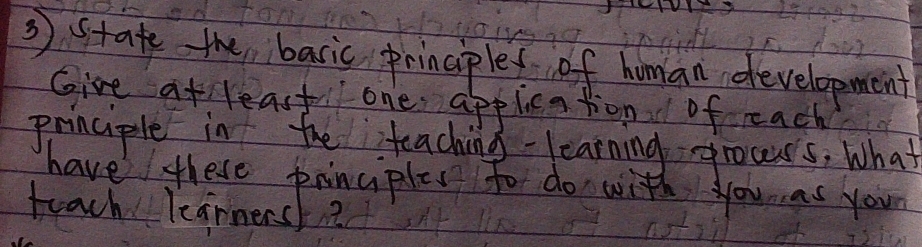 3) State the basic principles of human development
Give at least one application of each
principle in the teaching-learning process. What
have these principles to do with you as you
teach learners?